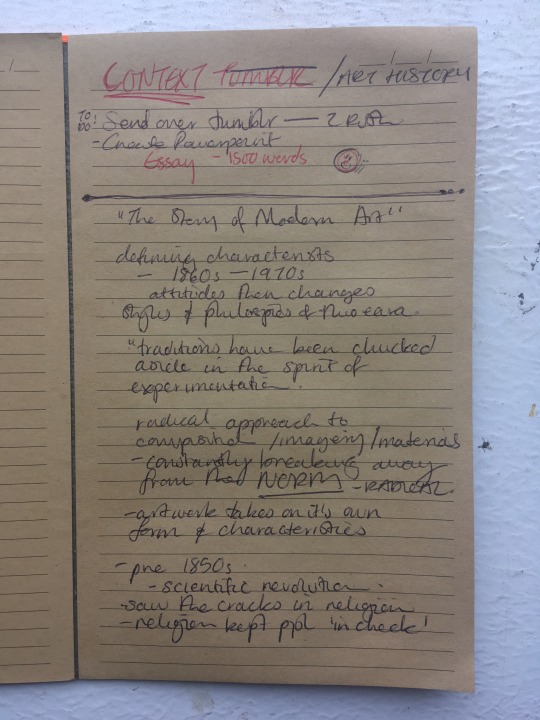 CONTEXT TUMBLR / ART HISTORY
TO DO: Send over tumblr — 2 Ruth
- Create Powerpoint
Essay - 1500 words 2
"The Story of Modern Art"
defining characterists
- 1860s - 1970s
attitudes then changes
styles &
"traditions have been chucked
aside in the spirit of
experimentation.
radical approach to
/imagery/materials
- constantly breaking away
from the NORM - RADICAL
- artwork takes on it's own
form & characteristics
- pre 1850s.
- scientific revolution.
- saw the cracks in religion
- religion kept ppl 'in check'